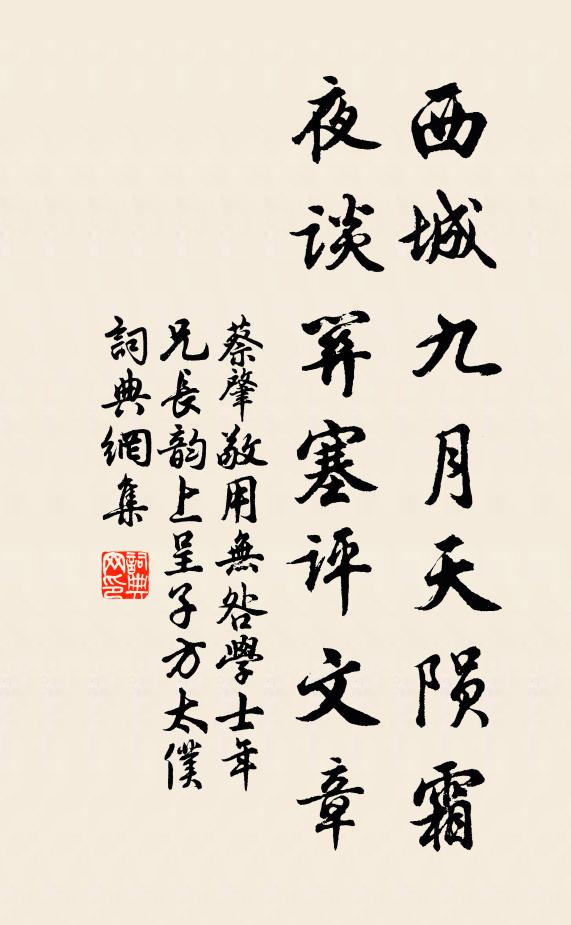 西城九月天陨霜
夜谈關塞评文章
蔡肇敬用無咎學士年
兄長韵上呈子方太僕
詞典網集
詞典网印